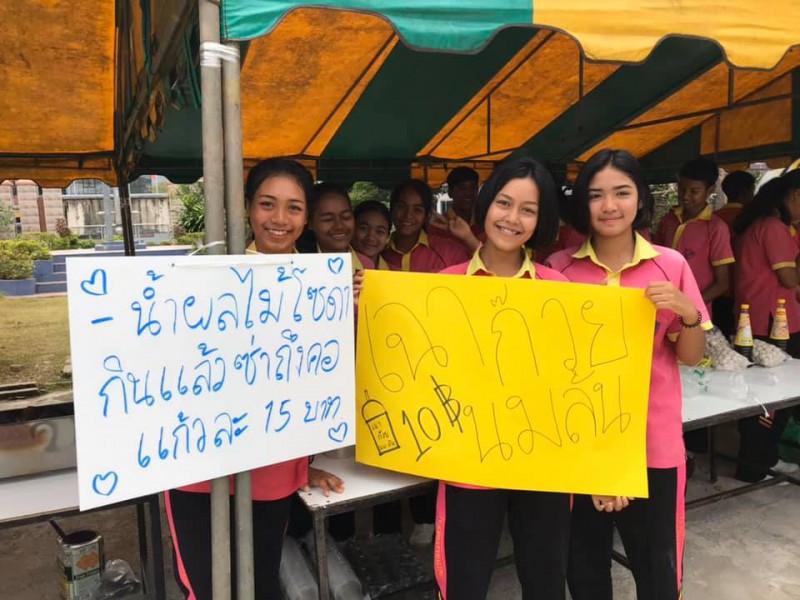 - น้ำผลไม้โซดา
กินแล้วซ่าถึงคอ
แก้วละ 15 บาท
เฉาก๊วย
10฿ นมล้น